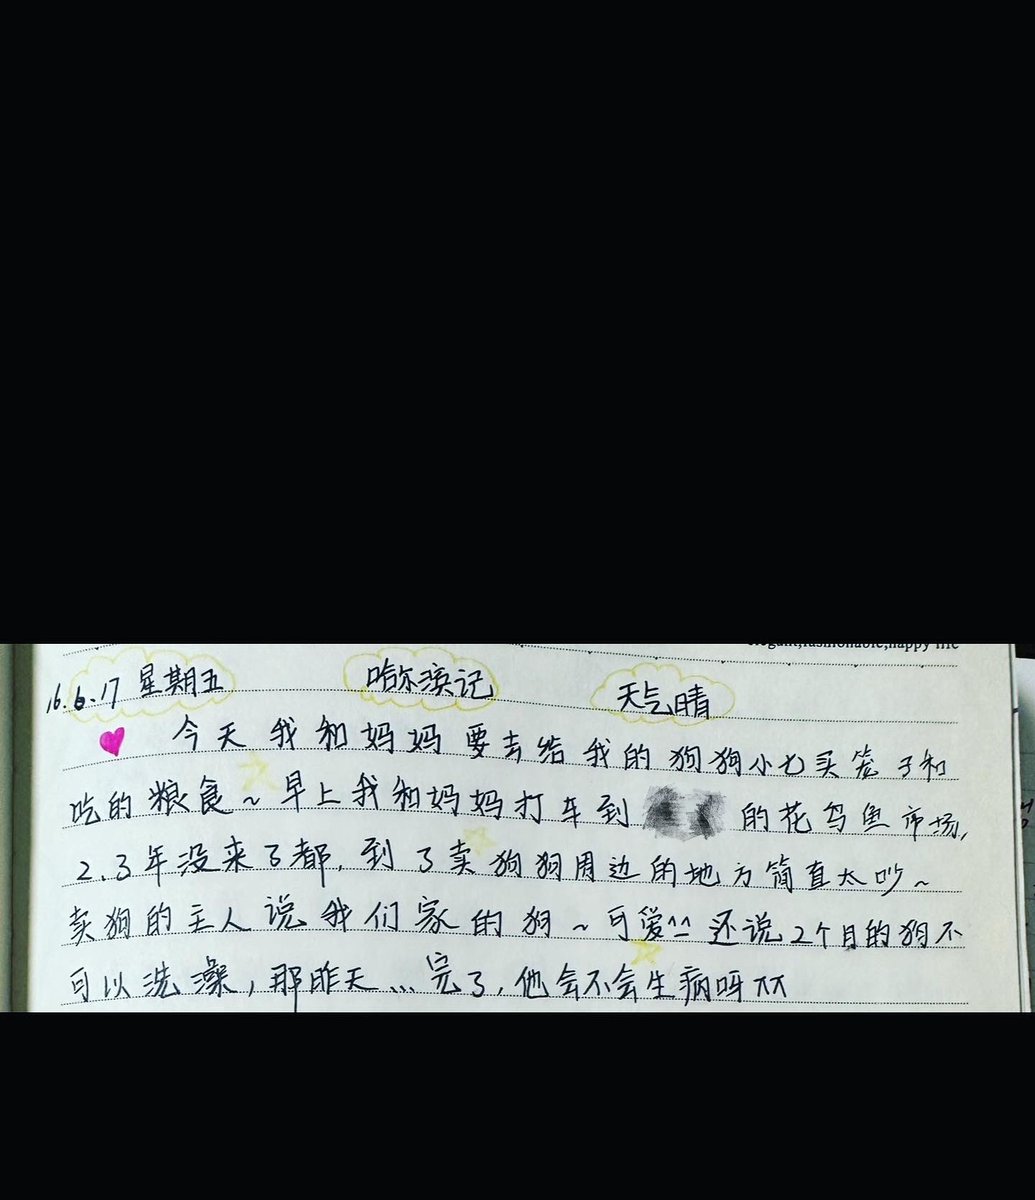 elegant,fashionable,happy life
16.6.17 星期五 哈尔滨记 天气晴
今天我和妈妈要去给我的狗狗小七买笼子和
吃的粮食~早上我和妈妈打车到 的花鸟鱼市场,
2.3年没来了都,到了卖狗狗周边的地方简直太吵~
卖狗的主人说我们家的狗~可爱^^还说2个月的狗不
可以洗澡,那昨天...完了,他会不会生病呀ㅠㅠ